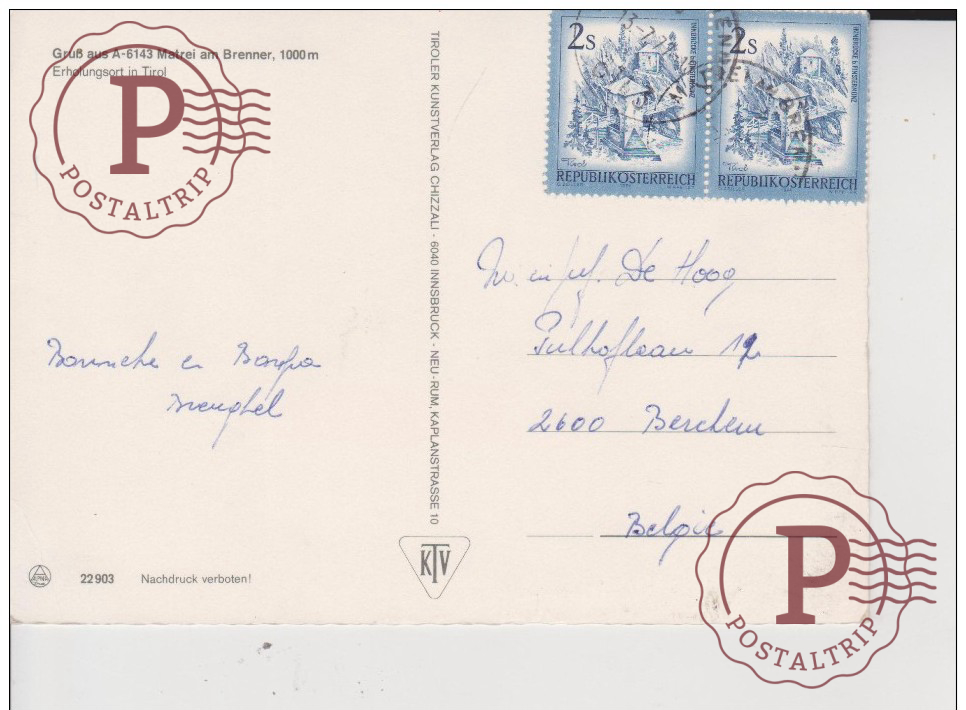 Gruß aus A-6143 Matrei am Brenner, 1000 m
Erholungsort in Tirol
P
POSTALTRIP
TIROLER KUNSTVERLAG CHIZZALI - 6040 INNSBRUCK - NEU-RUM, KAPLANSTRASSE 10
2S
Tirol
REPUBLIK ÖSTERREICH
2S
Tirol
REPUBLIK ÖSTERREICH
De Hoog
12
2600 Berchem
België
en
Breughel
KTV
22 903 Nachdruck verboten!
P
POSTALTRIP